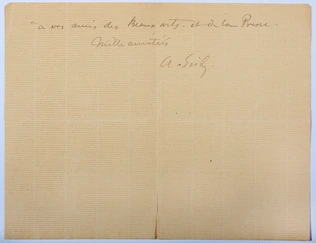 à vos amis des Beaux arts. et de la Presse.
Mille amitiés
A.